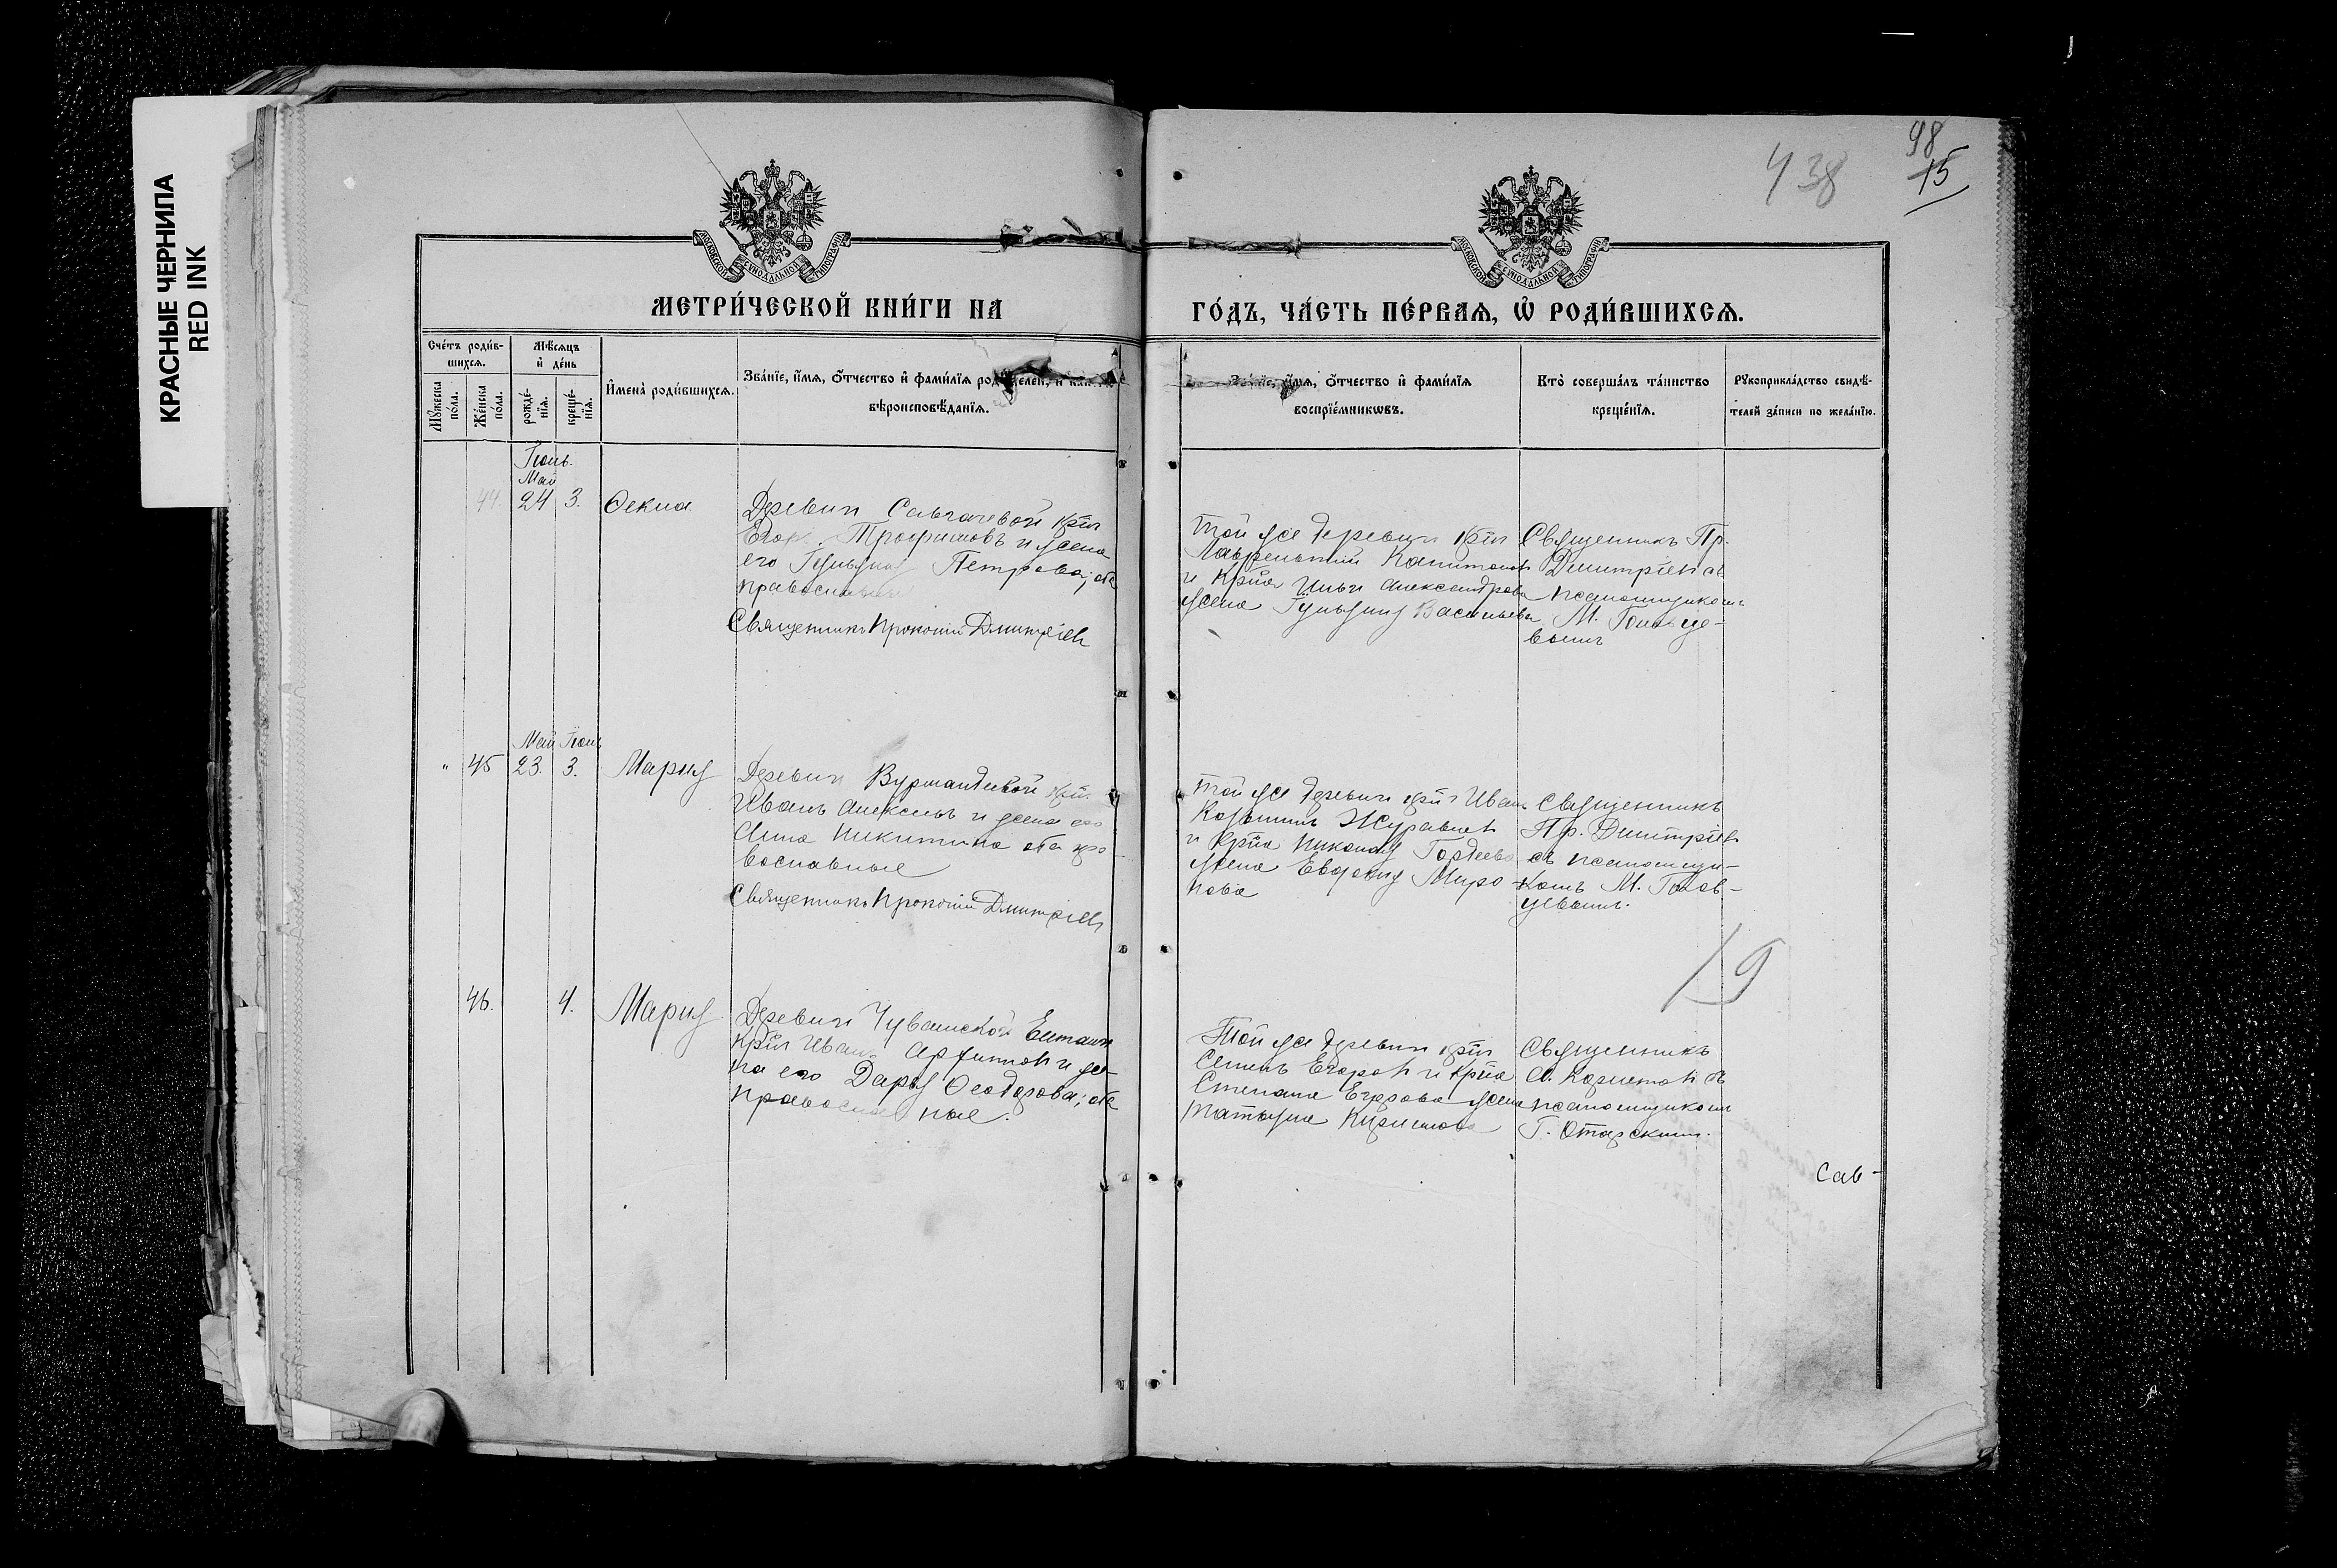 КРАСНЫЕ ЧЕРНИЛА
RED INK
438
98
15
МОСКОВСКОЙ СѴНОДАЛЬНОЙ ТИПОГРАФІИ
МОСКОВСКОЙ СѴНОДАЛЬНОЙ ТИПОГРАФІИ
МЕТРИ́ЧЕСКОЙ КНИ́ГИ НА
ГО́ДЪ, ЧА́СТЬ ПЕ́РВАѦ, Ѡ҆ РОДИ́ВШИХСѦ.
Сче́тъ роди́в-
шихсѧ.
Мꙋ́жеска
по́ла.
Же́нска
по́ла.
Мѣ́сѧцъ
и҆ де́нь
рожде́-
нїѧ.
креще́-
нїѧ.
И҆мена̀ роди́вшихсѧ.
Зва́нїе, и҆́мѧ, ѻ҆́тчество и҆ фами́лїѧ роди́телей, и҆
вѣроисповѣ́данїѧ.
Зва́нїе, и҆́мѧ, ѻ҆́тчество и҆ фами́лїѧ
воспрїе́мникѡвъ.
Кто̀ соверша́лъ та́инство
креще́нїѧ.
Рꙋкоприкла́дство свидѣ́-
телей за́писи по жела́нїю.
Іюнь.
Май
44 24 3. Ѳекла
Деревни Савгачевой крⷭ҇тн
Егоръ Трофимовъ и жена
его Гликерія Петрова; оба
православные
Священникъ Прокопій Дмитріевъ
Той же деревни крⷭ҇тн
Лаврентій Капитонов
и крⷭ҇тна Ильи Александрова
жена Васильева
Священникъ Пр.
Димитріевъ съ
псаломщикомъ
М. Голов
вымъ
Май Іюнь
" 45 23. 3. Марія
Деревни Вурмандеевой крⷭ҇тн
Иванъ Алексѣевъ и жена его
Анна Никитина оба пра
вославные
Священникъ Прокопій Дмитріевъ
Той же деревни крⷭ҇тн Иванъ
Козьминъ Журавлев
и крⷭ҇тна Николая Гордѣева
жена Евдокія Миро
нова
Священникъ
Пр. Димитріевъ
съ псаломщи-
комъ М. Голов-
цевымъ.
19
46. 4. Марія
Деревни Чувашской Елтани
крⷭ҇тн Иванъ Архиповъ и же-
на его Дарья Ѳеодорова; оба
православные.
Той же деревни крⷭ҇тн
Семенъ Егоровъ и крⷭ҇тна
Степана Егорова жена
Татьяна Кирилова
Священникъ
А. съ
псаломщикомъ
Г. Отарскимъ.
Сав-